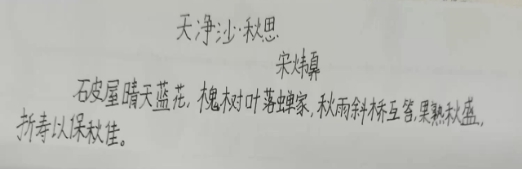 天净沙·秋思
宋炜鼐
石皮屋晴天蓝花，槐树叶落蝉家，秋雨斜桥互答，果熟秋盛，
折寿以保秋佳。